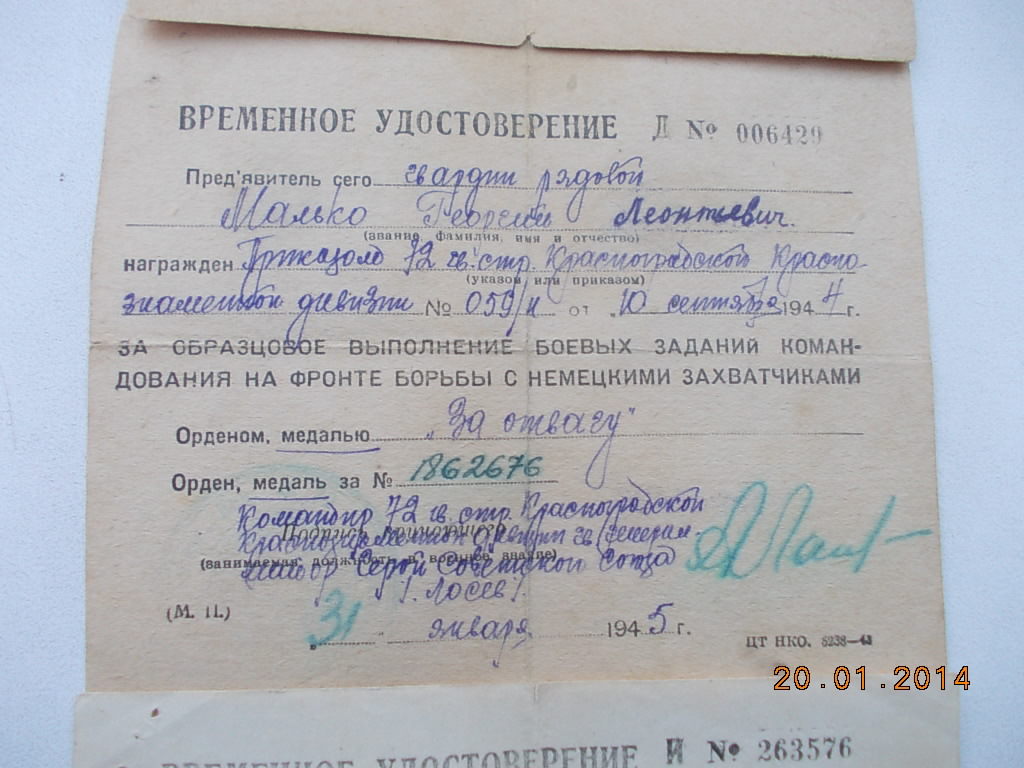 ВРЕМЕННОЕ УДОСТОВЕРЕНИЕ Д № 006429
Пред'явитель сего гвардии рядовой
Малько Георгий Леонтьевич.
(звание, фамилия, имя и отчество)
награжден Приказом 72 гв. стр. Красноградской Красно-
(указом или приказом)
знаменной дивизии № 059/н от "10 сентября 1944 г.
ЗА ОБРАЗЦОВОЕ ВЫПОЛНЕНИЕ БОЕВЫХ ЗАДАНИЙ КОМАН-
ДОВАНИЯ НА ФРОНТЕ БОРЬБЫ С НЕМЕЦКИМИ ЗАХВАТЧИКАМИ
Орденом, медалью "За отвагу"
Орден, медаль за № 1862676
Командир 72 гв. стр. Красноградской
Краснознаменной дивизии гв. генерал-
(занимаемая должность и военное звание)
майор Герой Советского Союза
/Лосев/.
(М. П.)
31 января 1945 г.
ЦТ НКО. 8238—43
20.01.2014
ВРЕМЕННОЕ УДОСТОВЕРЕНИЕ И № 263576